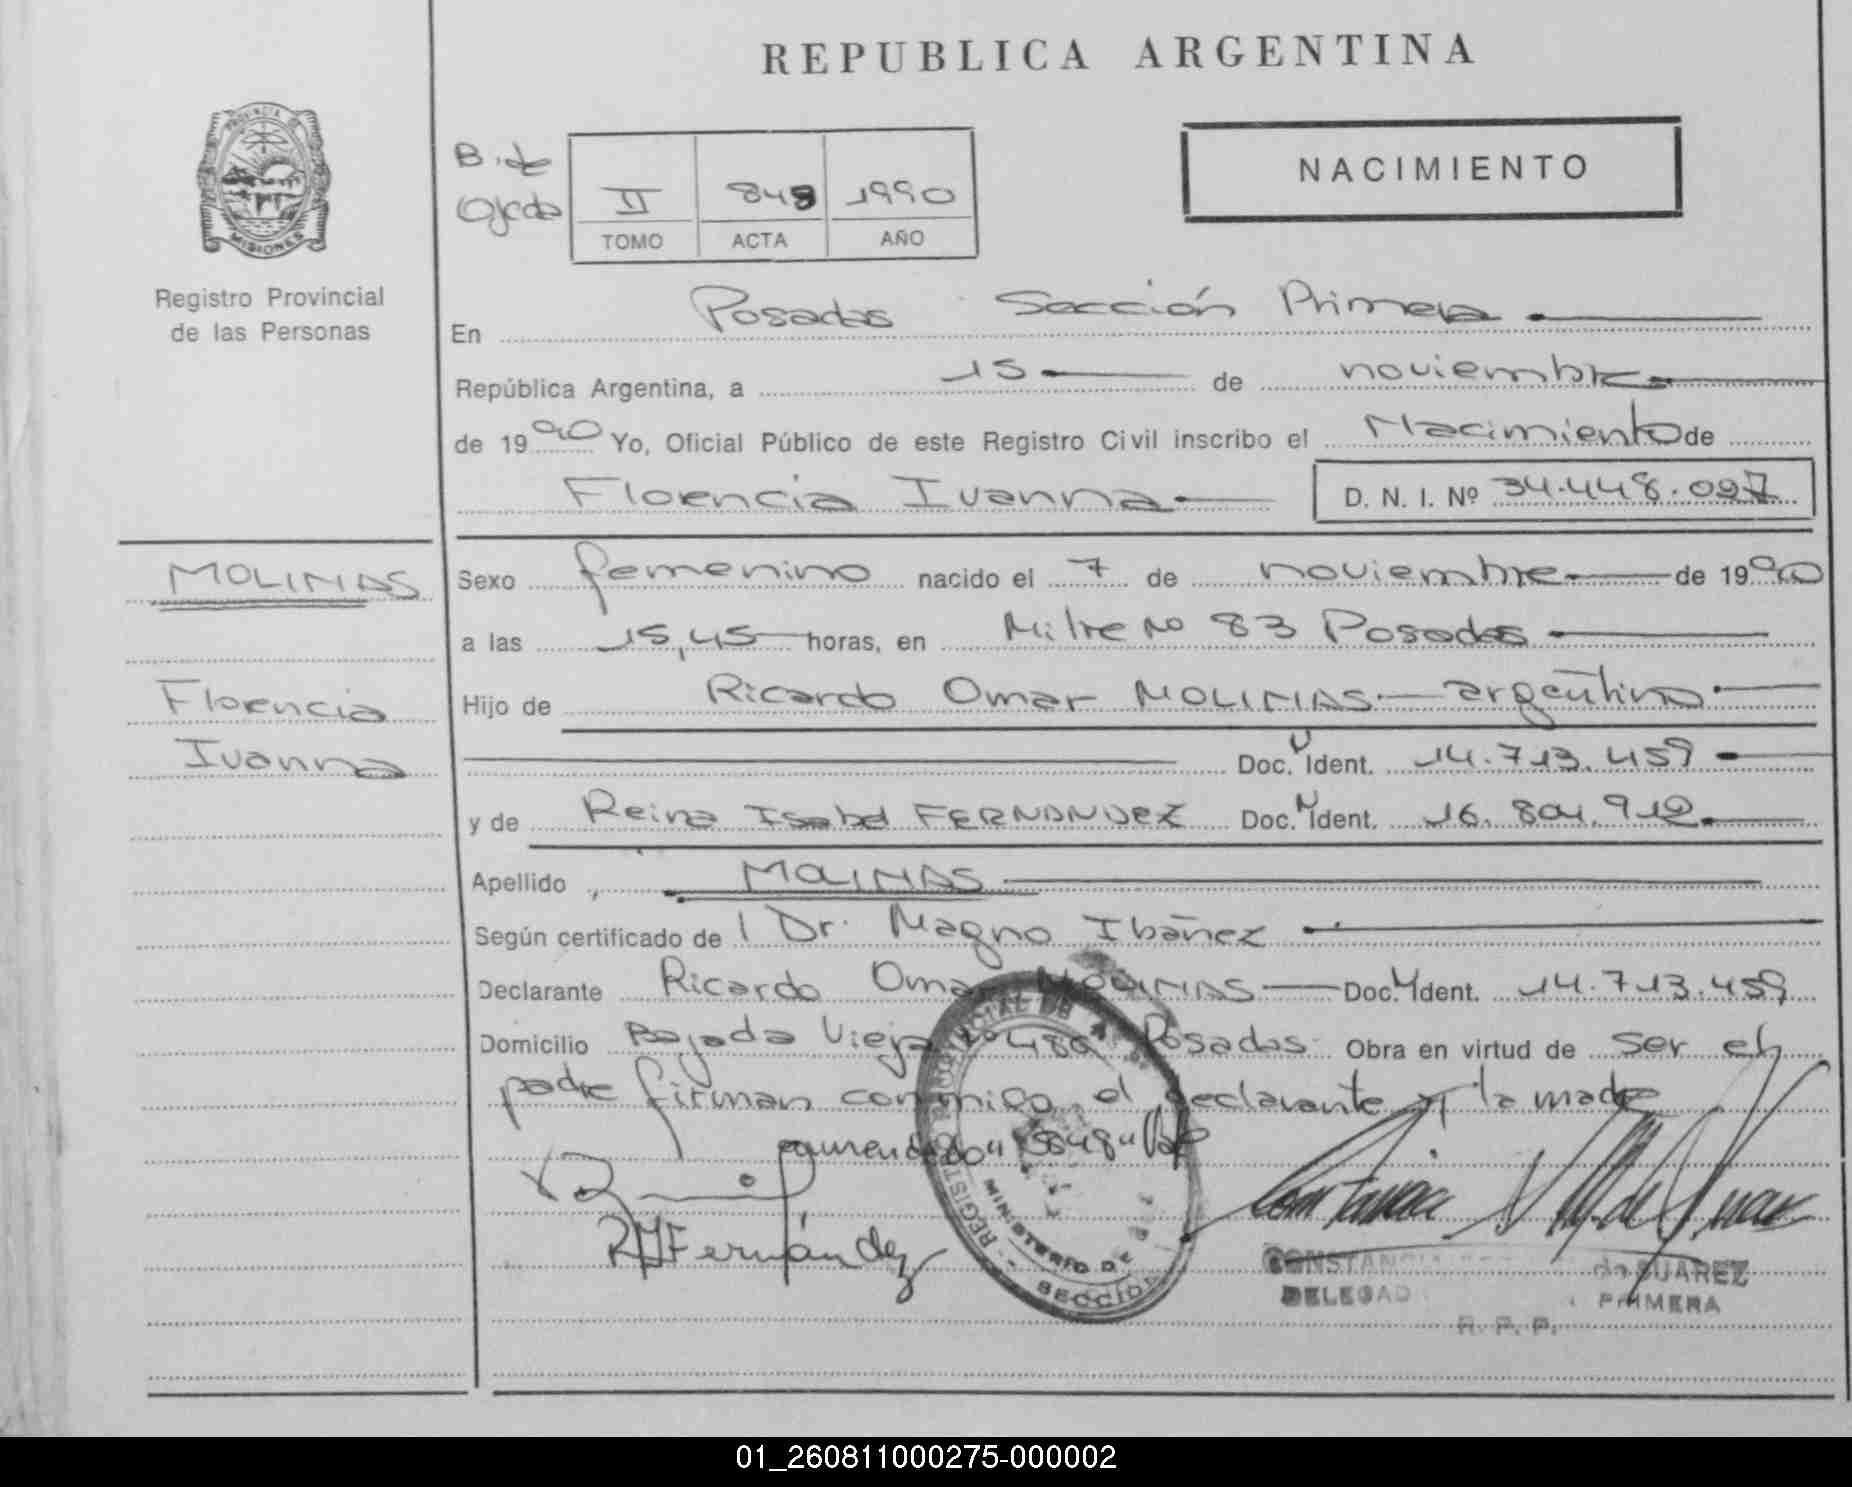 REPUBLICA ARGENTINA
PROVINCIA DE
MISIONES
Registro Provincial
de las Personas
B. de
Ojeda
II 848 1990
TOMO ACTA AÑO
NACIMIENTO
En Posadas Sección Primera
República Argentina, a 15 de noviembre
de 1990 Yo, Oficial Público de este Registro Civil inscribo el Nacimiento de
Florencia Ivanna D. N. I. Nº 34.448.097
MOLINAS
Florencia
Ivanna
Sexo femenino nacido el 7 de noviembre de 1990
a las 15,45 horas, en Mitre No 83 Posadas
Hijo de Ricardo Omar MOLINAS argentino
Doc. Ident. 14.713.459
y de Reina Isabel FERNANDEZ Doc. N Ident. 16.801.912
Apellido MOLINAS
Según certificado de Dr. Magno Ibañez
Declarante Ricardo Omar MOLINAS Doc. Ident. 14.713.459
Domicilio Bajada Vieja Nº 480 Posadas Obra en virtud de ser el
padre firman conmigo el declarante y la madre
enmendado "848" Vale
RIFernández
MINISTERIO DE
SECCION
CONSTANCIA de SUAREZ
DELEGAD PRIMERA
R. P. P.
01_260811000275-000002